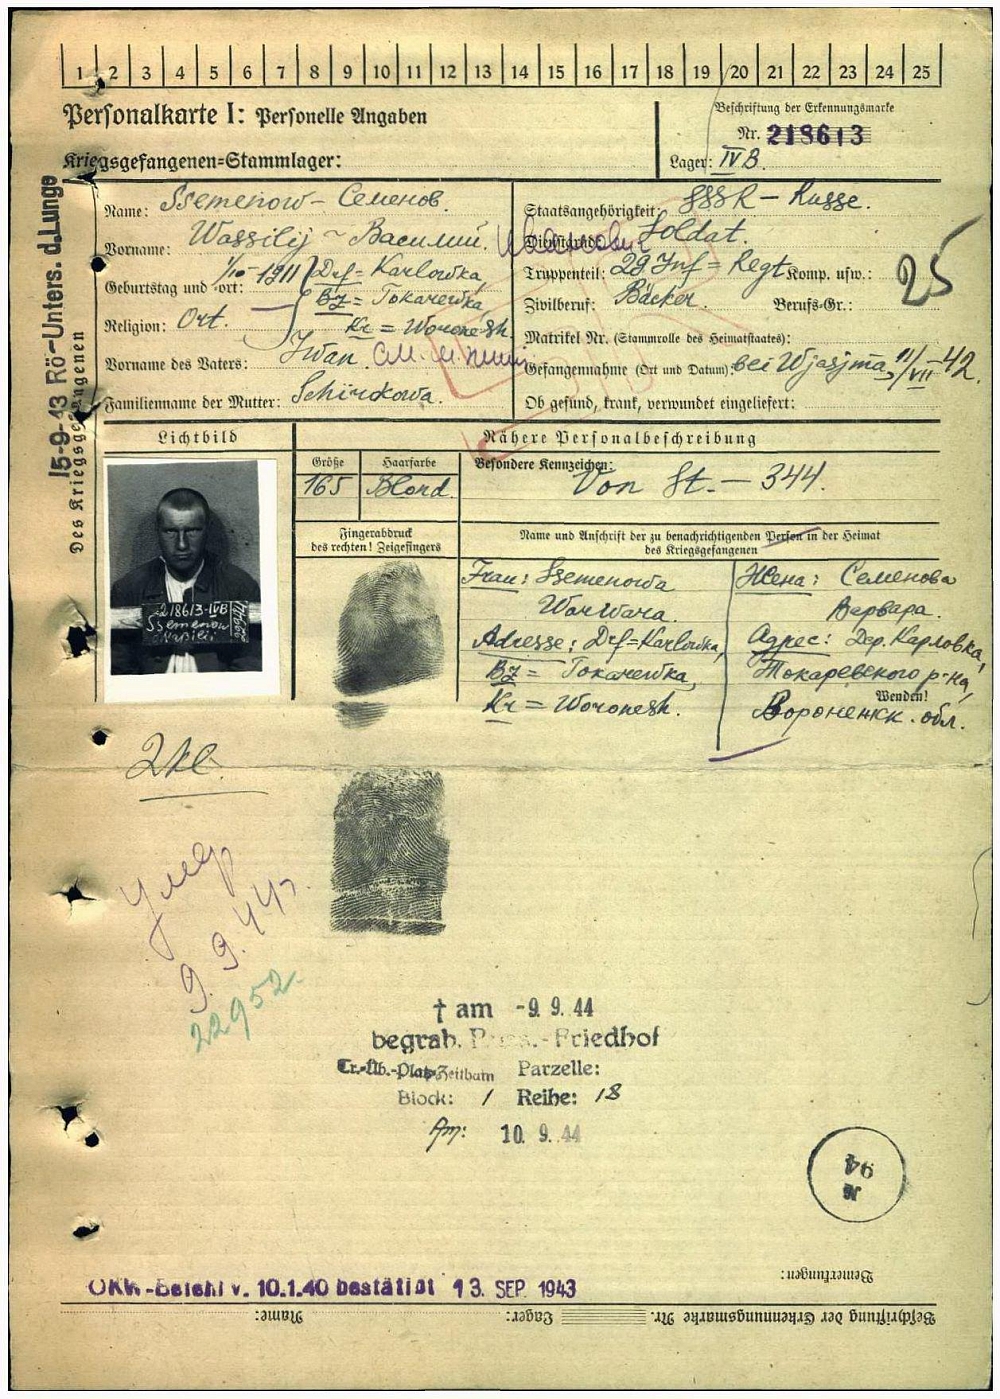 1 2 3 4 5 6 7 8 9 10 11 12 13 14 15 16 17 18 19 20 21 22 23 24 25
Personalkarte I: Personelle Angaben
Kriegsgefangenen=Stammlager:
Beschriftung der Erkennungsmarke
Nr. 218613
Lager: IV B.
15-9-43 Rö-Unters. d. Lunge
Des Kriegsgefangenen
Name: Ssemenow - Семенов.
Vorname: Wassilij ~ Василий.
Geburtstag und =ort: 1/10 - 1911 Drf = Karlowka,
Bz = Токаревка,
Religion: Ort. Kr = Woronesh
Vorname des Vaters: Iwan
Familienname der Mutter: Schirkowa.
Staatsangehörigkeit: SSSR - Russe.
Dienstgrad: Soldat.
Truppenteil: 29 Inf = Regt Komp. usw.:
25
Zivilberuf: Bäcker. Berufs-Gr.:
Matrikel Nr. (Stammrolle des Heimatstaates):
Gefangennahme (Ort und Datum): bei Wjasjma, 11/VII - 42.
Ob gesund, krank, verwundet eingeliefert:
Lichtbild
Nähere Personalbeschreibung
Größe Haarfarbe Besondere Kennzeichen:
165 Blond. Von St. - 344.
Fingerabdruck
des rechten! Zeigefingers
Name und Anschrift der zu benachrichtigenden Person in der Heimat
des Kriegsgefangenen
218613-IVB
Ssemenow
Wasilii
Frau: Ssemenowa
Warwara.
Adresse: Drf = Karlowka,
Bz = Токаревка,
Kr = Woronesh.
Жена: Семенова
Варвара.
Адрес: Дер. Карловка,
Токаревского р-на,
Wenden!
Воронежск. обл.
2 kl.
Умер
9.9.44 г.
22952.
† am -9. 9. 44
begrab. Russ.-Friedhof
Tr.-Üb.-Platz Zeithain Parzelle:
Block: 1 Reihe: 18
Am: 10. 9. 44
94
Bemerkungen:
OKW-Befehl v. 10.1.40 bestätigt 13. SEP. 1943
Beschriftung der Erkennungsmarke Nr. Lager: Name: